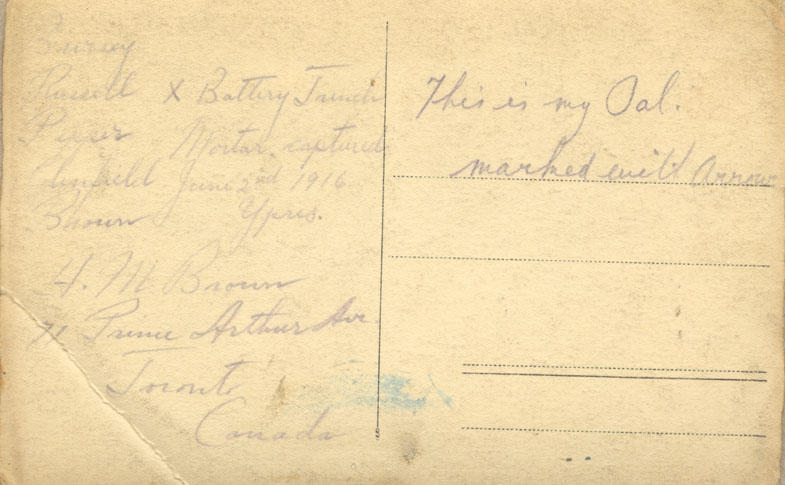 Russell X Battery Trench
Mortar captured
June 2nd 1916
Brown Ypres.
H. M Brown
71 Prince Arthur Ave.
Toronto
Canada
This is my Pal.
marked with Arrow